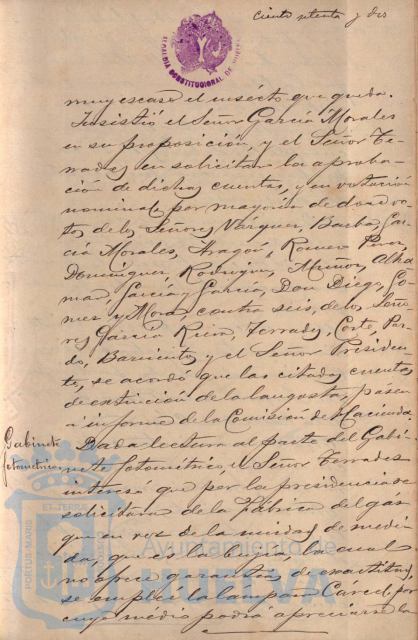 ciento setenta y dos
ALCALDIA CONSTITUCIONAL DE HUELVA
muy escaso el insécto que queda.
Insistió el Señor García Morales
en su proposición, y el Señor Te-
rrades en solicitar la aproba-
ción de dichas cuentas, y en votación
nominal, por mayoria de doce vo-
tos de los Señores Vázquez, Barba, Gar-
cía Morales, Aragón, Romero Perez,
Dominguez, Rodriguez, Muñoz, Alha
ma, García y García, Don Diego, Go-
mes y Mora contra seis, de los Seño-
res Garcia Riero, Terrades, Corte, Par-
do, Barmiento y el Señor Presiden-
te, se acordó que las citadas cuentas
de extinción de la langosta, pasen
á informe de la Comisión de Hacienda.
Gabinete
fotométrico
Dada lectura al parte del Gabi-
nete fotométrico, el Señor Terrades
interesó que por la presidencia se
solicitara de la fábrica del gás
que en vez de la unidad de medi-
da, que es la bujía, la cual
no ofrece garantía de exactitud,
se emplée la lampara Cárcel, por
cuyo medio podrá apreciarse la
PORTUS MARIS
ET TERRAE
Ayuntamiento de
HUELVA